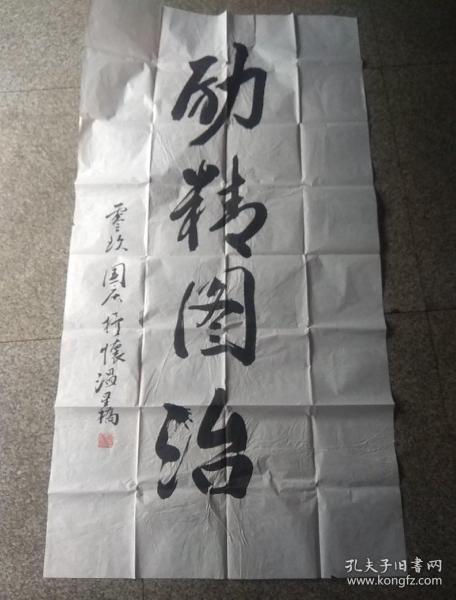 励精图治
国庆抒怀
孔夫子旧书网
www.kongfz.com